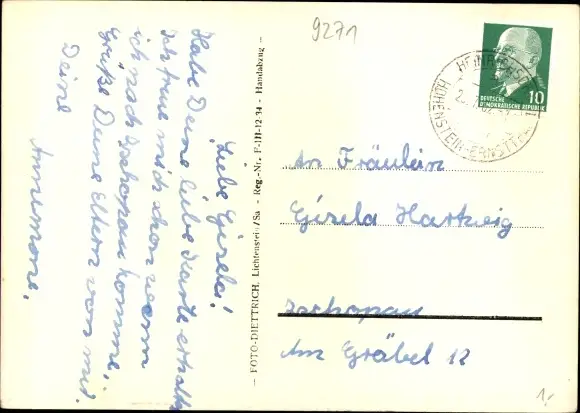 Liebe Gisela!
Habe Deine liebe Karte erhalten
Ich freue mich schon wenn
ich nach Zschopau komme,
Grüße Deine Eltern von mir.
Deine
Annemone,
— FOTO-DIETTRICH, Lichtenstein/Sa - Reg.-Nr. F-III-12-34 - Handabzug —
9271
DEUTSCHE
DEMOKRATISCHE REPUBLIK
10
HOHENSTEIN-ERNSTTHAL
An Fräulein
Gisela Hartwig
Zschopau
Am Gräbel 12
1,-